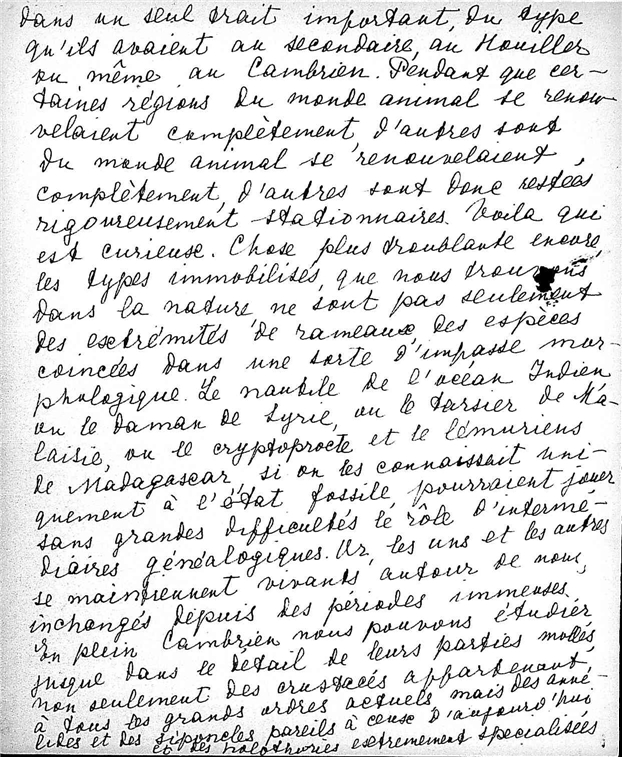 dans un seul trait important, du type
qu'ils avaient au secondaire, au Houiller
ou même au Cambrien. Pendant que cer-
taines régions du monde animal se renou-
velaient complètement d'autres sont
du monde animal se renouvelaient
complètement, d'autres sont donc restées
rigoureusement stationnaires. Voila qui
est curieuse. Chose plus troublante encore,
les types immobilisés, que nous trouvons
dans la nature, ne sont pas seulement
des extrémités de rameaux des espèces
coincées dans une sorte d'impasse mor-
phologique. Le nautile de l'océan Indien
ou le daman de Syrie, ou le tarsier de Ma-
laisie, ou le cryptoprocte et le lémuriens
de Madagascar, si on les connaissait uni-
quement à l'état fossile pourraient jouer
sans grandes difficultés le rôle d'intermé-
diaires généalogiques. Or, les uns et les autres
se maintiennent vivants autour de nous,
inchangés depuis des périodes immenses.
En plein Cambrien nous pouvons étudier
jusque dans le détail de leurs parties molles
non seulement des crustacés appartenant,
à tous les grands ordres actuels mais des anné-
lides et des siponcles pareils à ceuse d'aujourd'hui
et des holothuries extremement specialisées